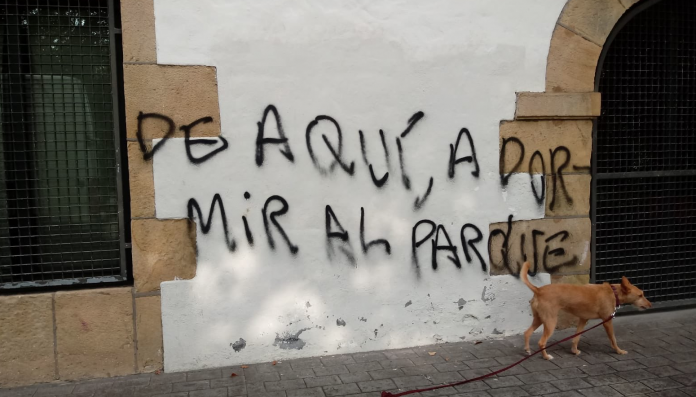 DE AQUÍ, A DOR-
MiR AL PARQUE